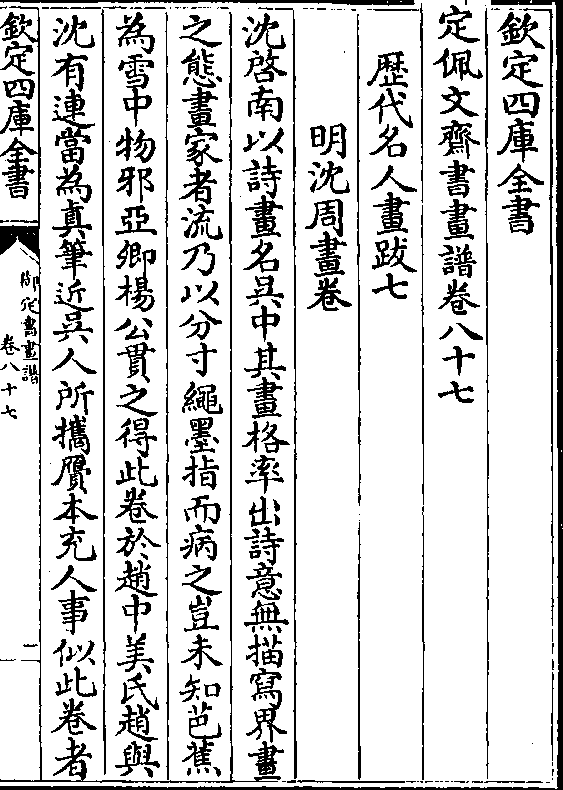 欽定四庫全書
定佩文齋書畫譜卷八十七
歴代名人畫跋七
明沈周畫卷
沈啓南以詩畫名吳中其畫格率出詩意無描寫界畫
之態畫家者流乃以分寸繩墨指而病之豈未知芭蕉
為雪中物邪亞卿楊公貫之得此卷於趙中美氏趙與
沈有連當為真筆近吳人所攜贋本充人事似此卷者
欽定四庫全書
御定書畫譜
卷八十七
一